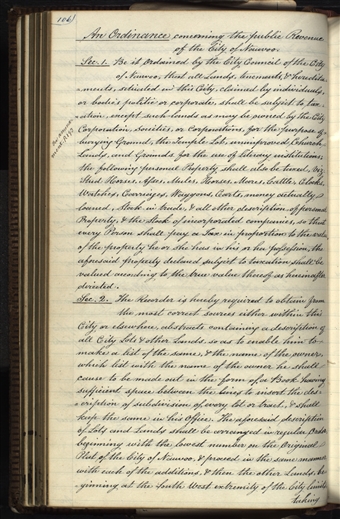 106
An Ordinance concerning the public Revenue
of the City of Nauvoo.
Sec. 1. Be it Ordained by the City Council of the City
of Nauvoo, that all Lands, tenements, & heredita-
-ments, situated in this City, claimed by individuals,
or bodies politic or corporate, shall be subject to tax-
-ation, except such lands as may be owned by the City
Corporation, Societies, or Corporations, for the purpose of
burying Ground, the Temple Lot, unimproved Church
Lands, and Grounds for the use of Literary institutions,
the following personal Property shall also be taxed. Viz
Stud Horses, Asses, Mules, Horses, Mares, Cattle, Clocks,
Watches, Carriages, Waggons, Carts, money actually
loaned, Stock in trade, & all other description of personal
Property, & the Stock of incorporated companies, so that
every Person shall pay a Tax in proportion to the value
of the property he or she has in his or her possession, the
aforesaid property declared subject to taxation shall be
valued according to the true value thereof as hereinafter
directed.
Sec. 2. The Recorder is hereby required to obtain from
the most correct sources either within this
City or elsewhere, abstracts containing a description of
all City Lots & other Lands, so as to enable him to
make a list of the same, & the name of the owner
which list with the name of the owner he shall
cause to be made out in the form of a Book, leaving
sufficient space between the lines to insert the des-
-cription of subdivision of every Lot or tract, & shall
keep the same in his Office. The aforesaid description
of Lots and Lands shall be arranged in regular Order
beginning with the lowest number on the Original
Plat of the City of Nauvoo, & proceed in the same manner
with each of the additions, & then the other Lands, be
ginning at the South West extremity of the City limits
taking